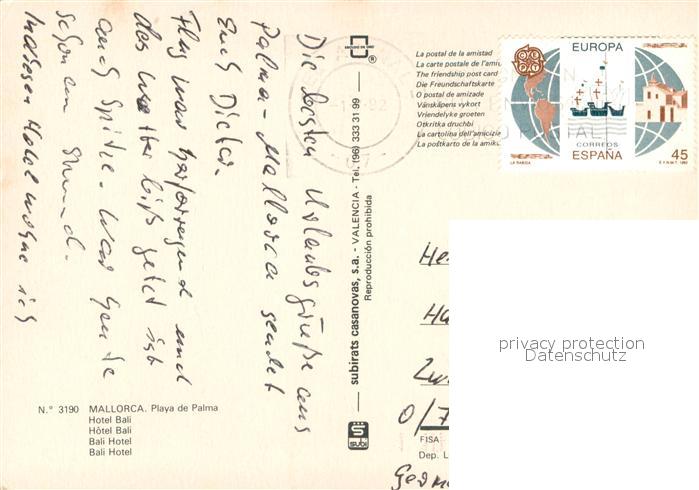 Die besten Urlaubsgrüße aus
Palma-Mallorca sendet
Euch Dieter.
Flug war hervorragend und
das Wetter bis jetzt ist
auch Spitze. War heute
schon am Strand.
In diesem Hotel wohne ich
N.° 3190 MALLORCA. Playa de Palma
Hotel Bali
Hôtel Bali
Bali Hotel
Bali Hotel
subirats casanovas, s.a. - VALENCIA - Tel. (96) 333 31 99
Reproducción prohibida
subi
La postal de la amistad
La carte postale de l'ami
The friendship post card
Die Freundschaftskarte
O postal de amizade
Vänskåpens vykort
Vriendelyke groeten
Otkritka druchbi
La cartolina dell'amicizia
La poštkarto de la amik
EUROPA
CORREOS
ESPAÑA
45
LA RABIDA
F.N.M.T. 1992
He
Ha
0/7
FISA
Dep. L
Germ
privacy protection
Datenschutz